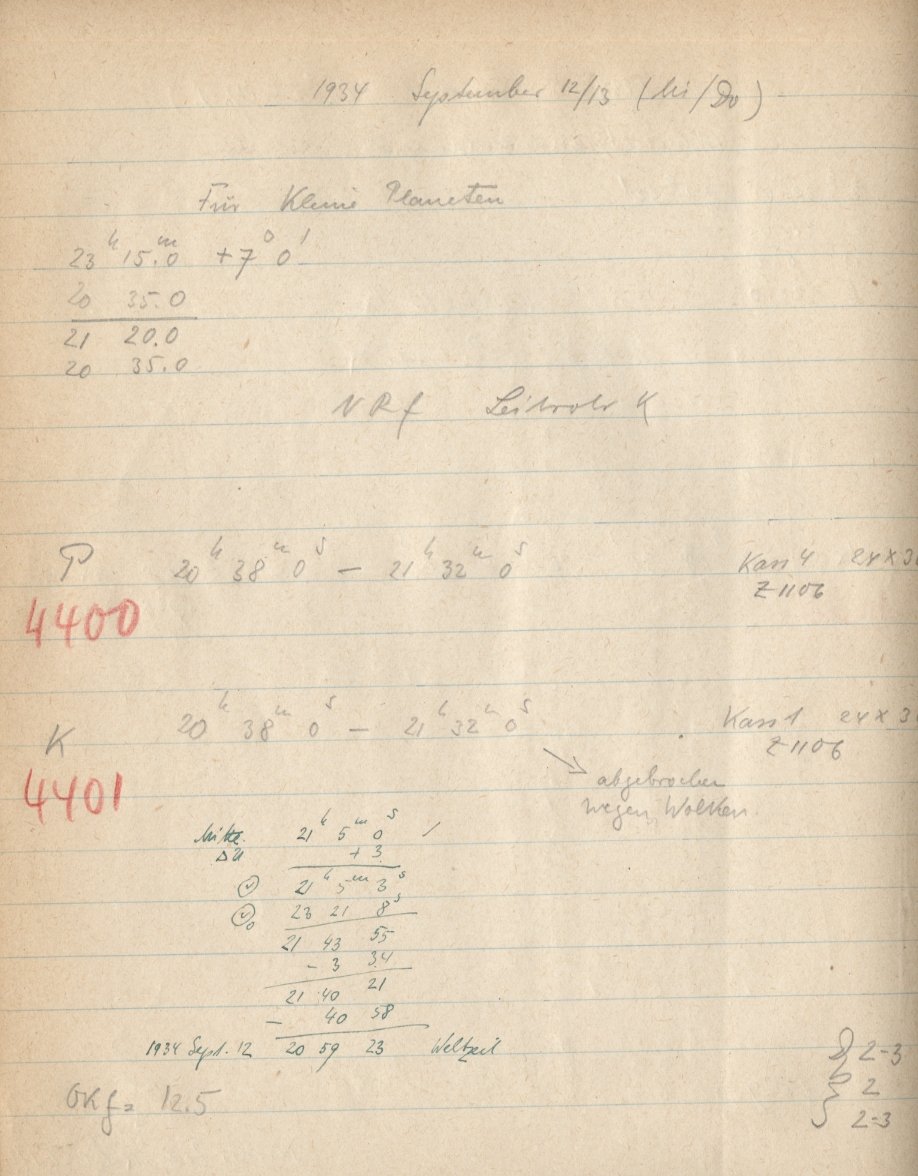 1934 September 12/13 (Mi/Do)
Für Kleine Planeten
23h 15.m0 +7° 0'
20 35.0
21 20.0
20 35.0
NRf Leitrohr K
P 20h 38m 0s — 21h 32m 0s Kass 4 24 x 3
Z 1106
4400
K 20h 38m 0s — 21h 32m 0s Kass 1 24 x 3
Z 1106
4401
abgebrochen
wegen Wolken.
Mitte 21h 5m 0s ✓
Δu + 3
21h 5m 3s
23 21 8s
21 43 55
- 3 34
21 40 21
- 40 58
1934 Sept. 12 20 59 23 Weltzeit
2-3
OKf = 12.5 2
2-3